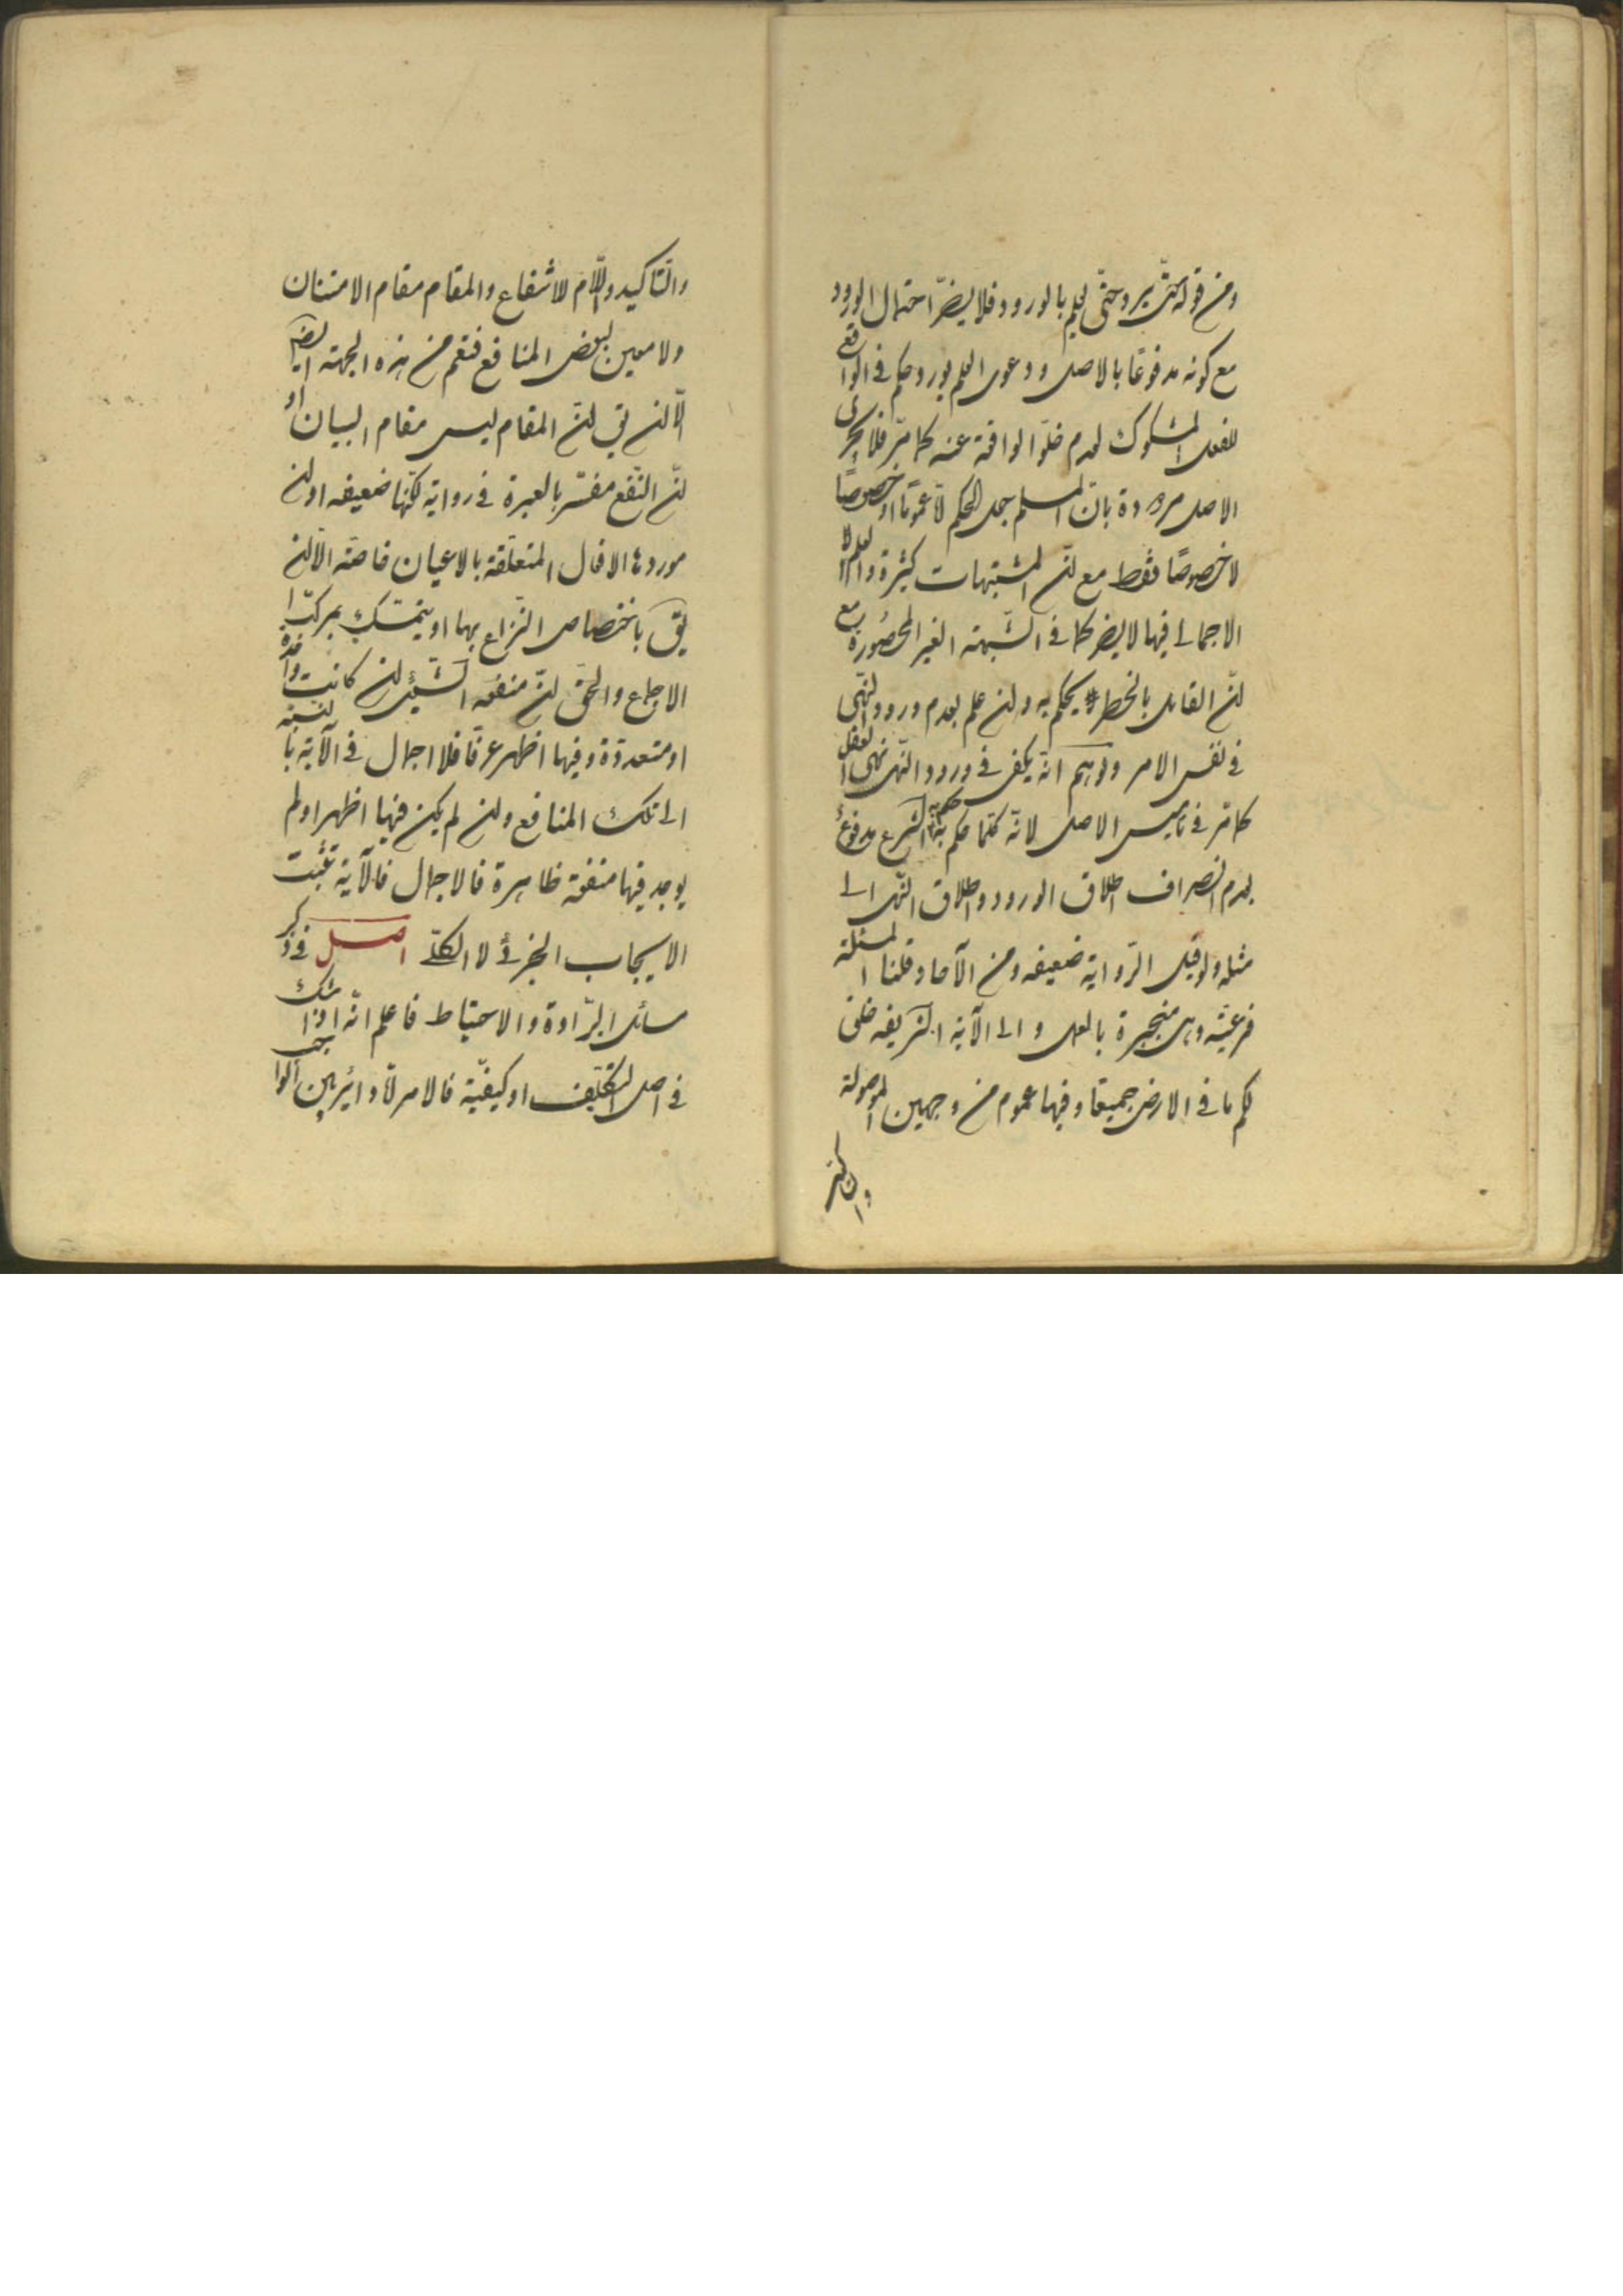 ومن قوله حتّى يرد حتّى يعلم بالورود فلا يضرّ احتمال الورود
مع كونه مدفوعًا بالاصل ودعوى العلم بورود حكم فى الواقع
للفعل المشكوك لعدم خلوّ الواقعة عنه كما مرّ فلا يجرى
الاصل مردودة بانّ المسلم جعل الحكم عمومًا او خصوصًا
لا خصوصًا فقط مع انّ المشتبهات كثيرة والعلم
الاجمالى فيها لا يضر كما فى الشّبهة الغير المحصورة مع
انّ القائل بالحظر يحكم به وان علم بعدم ورود النّهى
فى نفس الامر وتوهم انّه يكفى فى ورود النّهى نهى العقل
كما مرّ فى تاسيس الاصل لانّه كلّما حكم به حكم به الشرع مدفوع
بعدم انصراف اطلاق الورود واطلاق النّهى الى
مثله ولو قيل الرّواية ضعيفه ومن الآحاد قلنا المسئلة
فرعيّة وهى منجبرة بالعمل والى الآية الشريفه خلق
لكم ما فى الارض جميعًا وفيها عموم من وجهين الموصولة
والتاكيد
والتّاكيد واللّام للانتفاع والمقام مقام الامتنان
ولا معين لبعض المنافع فتعم من هذه الجهة ايضا
الّا ان يق انّ المقام ليس مقام البيان او
انّ النّفع مفسّر بالعبرة فى رواية لكنّها ضعيفه او ان
موردها الافعال المتعلّقة بالاعيان خاصّة الّا ان
يق باختصاص النّزاع بها او يتمسّك بمركّب
الاجماع والحق انّ منفعه الشّيئ ان كانت واحدة
او متعددة وفيها اظهر عرفًا فلا اجمال فى الآية بالنسبة
الى تلك المنافع وان لم يكن فيها اظهر او لم
يوجد فيها منفعة ظاهرة فالاجمال فالآية تثبت
الايجاب الجزئى لا الكلّى اصل فى ذكر
مسائل البرّاءة والاحتياط فاعلم انّه اذا شك
فى اصل التّكليف او كيفيّة فالامر دائر بين الواجب